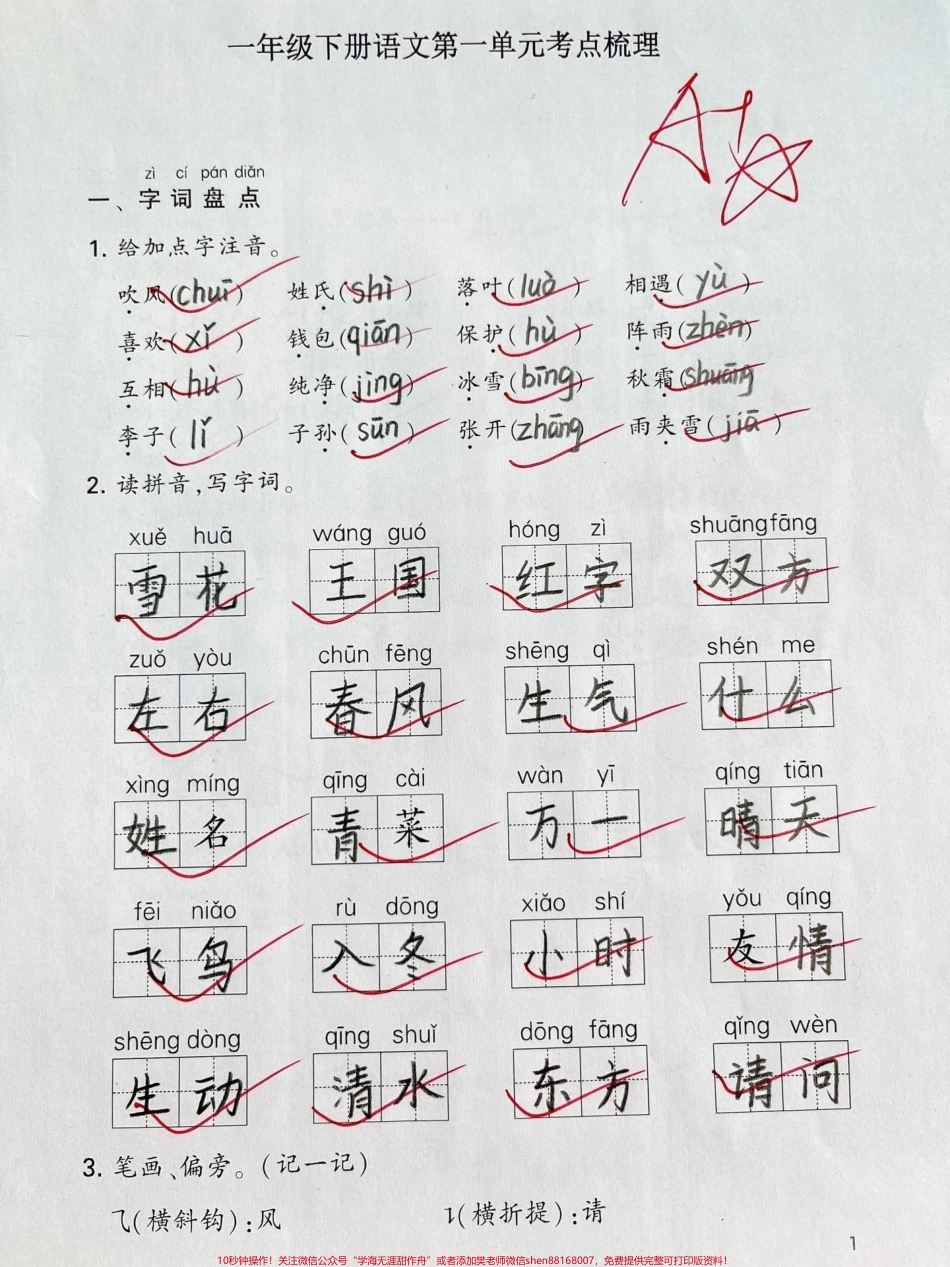 一年级下册语文第一单元考点梳理
A+
zì cí pán diǎn
一、字词盘点
1. 给加点字注音。
吹风(chuī) 姓氏(shì) 落叶(luò) 相遇(yù)
喜欢(xǐ) 钱包(qián) 保护(hù) 阵雨(zhèn)
互相(hù) 纯净(jìng) 冰雪(bīng) 秋霜(shuāng)
李子(lǐ) 子孙(sūn) 张开(zhāng) 雨夹雪(jiā)
2. 读拼音,写字词。
xuě huā wáng guó hóng zì shuāng fāng
雪花 王国 红字 双方
zuǒ yòu chūn fēng shēng qì shén me
左右 春风 生气 什么
xìng míng qīng cài wàn yī qíng tiān
姓名 青菜 万一 晴天
fēi niǎo rù dōng xiǎo shí yǒu qíng
飞鸟 入冬 小时 友情
shēng dòng qīng shuǐ dōng fāng qǐng wèn
生动 清水 东方 请问
3. 笔画、偏旁。(记一记)
⺄(横斜钩):风 ㇊(横折提):请
1
10秒钟操作！关注微信公众号“学海无涯甜作舟”或者添加樊老师微信shen88168007，免费提供完整可打印版资料！